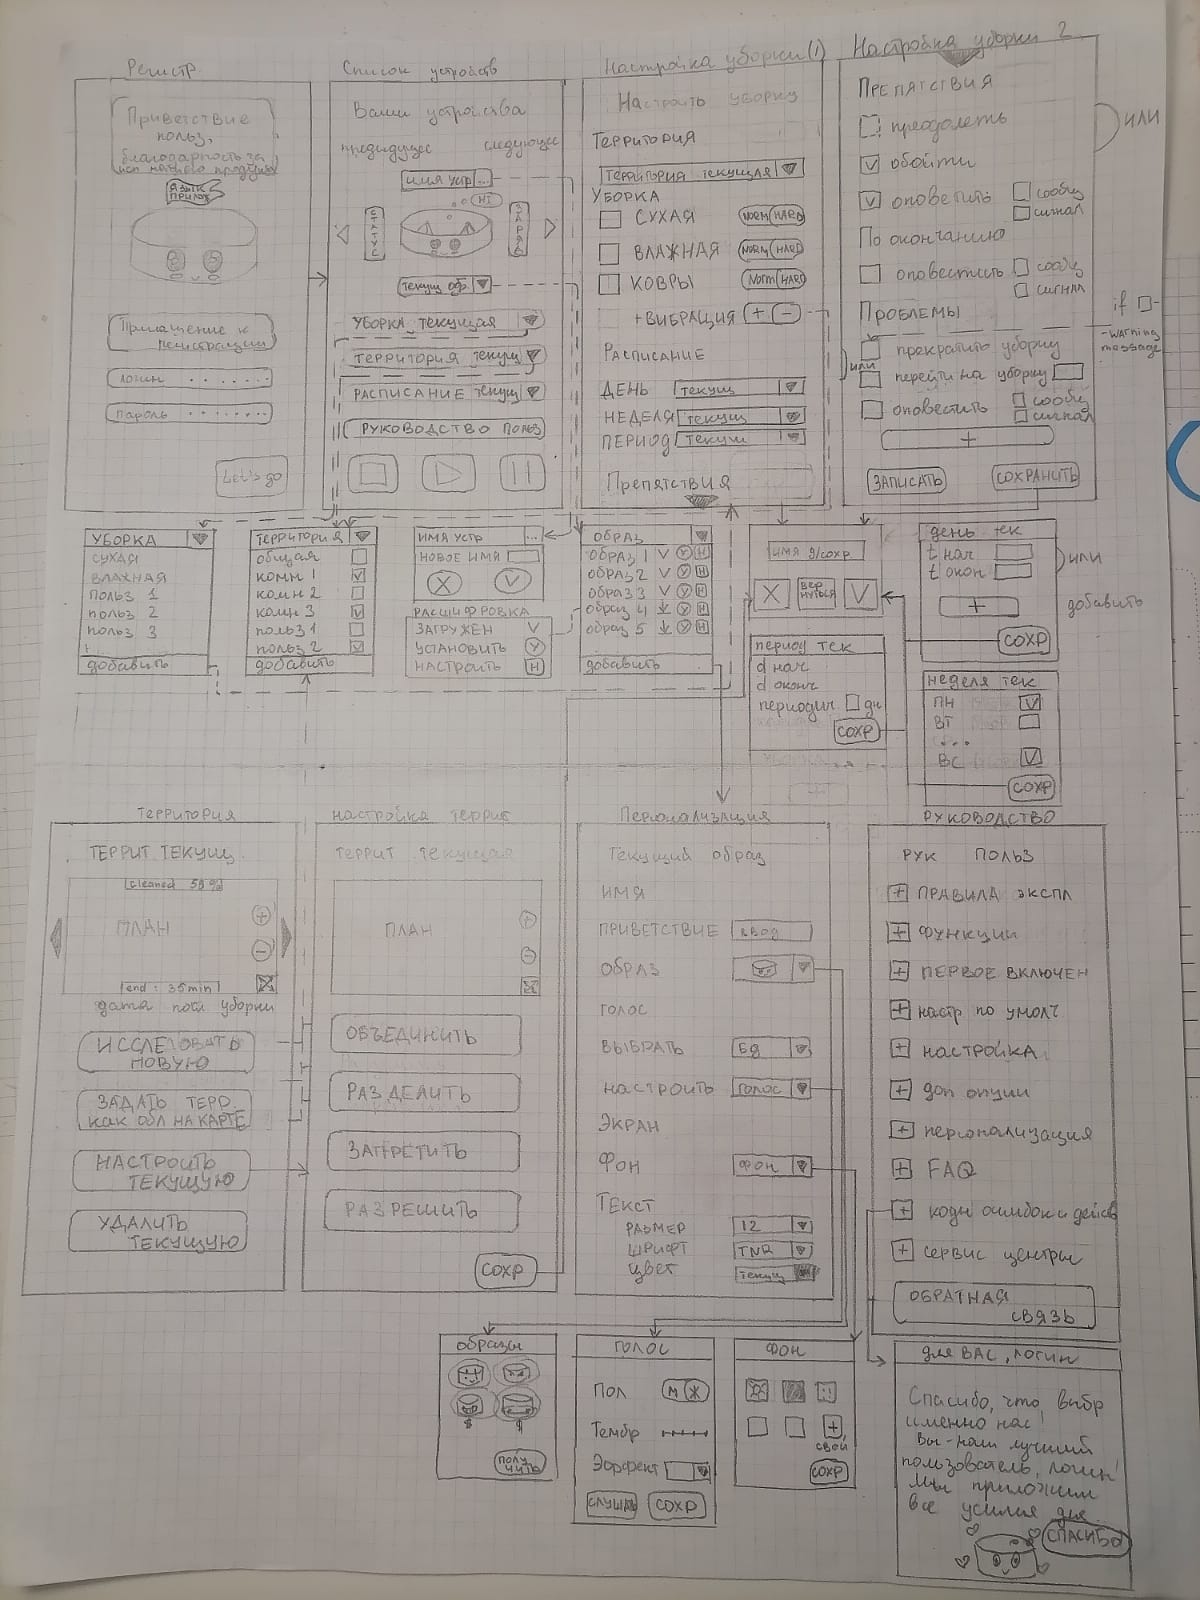 Регистр
Приветствие
польз,
благодарность за
исп нашего продукта
ЯЗЫК
ПРИЛОЖ
Приглашение к
регистрации
логин
пароль
Let's go
Список устройств
Ваши устройства
предидущее следующее
имя устр ...
HI
СТАТУС
ЗАРЯД
текущ обр.
УБОРКА текущая
ТЕРРИТОРИЯ текущ
РАСПИСАНИЕ текущ
РУКОВОДСТВО польз
Настройка уборки (1)
Настроить уборку
Территория
ТЕРРИТОРИЯ текущая
УБОРКА
СУХАЯ NORM HARD
ВЛАЖНАЯ NORM HARD
КОВРЫ NORM HARD
+ ВИБРАЦИЯ + -
РАСПИСАНИЕ
ДЕНЬ текущ
НЕДЕЛЯ текущ
ПЕРИОД текущ
Препятствия
Настройка уборки 2
ПРЕПЯТСТВИЯ
преодолеть
ИЛИ
обойти
оповестить сообщ
сигнал
По окончанию
оповестить сообщ
сигнал
ПРОБЛЕМЫ
if -
- warning
message
прекратить уборку
или
перейти на уборку
оповестить сообщ
сигнал
+
ЗАПИСАТЬ СОХРАНИТЬ
УБОРКА
СУХАЯ
ВЛАЖНАЯ
ПОЛЬЗ 1
ПОЛЬЗ 2
ПОЛЬЗ 3
добавить
ТЕРРИТОРИЯ
общая
комн 1
комн 2
комн 3
польз 1
польз 2
добавить
ИМЯ УСТР ...
НОВОЕ ИМЯ
X V
РАСШИФРОВКА
ЗАГРУЖЕН V
УСТАНОВИТЬ У
НАСТРОИТЬ Н
ОБРАЗ
ОБРАЗ 1 V У Н
ОБРАЗ 2 V У Н
ОБРАЗ 3 V У Н
ОБРАЗ 4 У Н
ОБРАЗ 5 У Н
добавить
имя д/сохр
X вернуться V
период тек
d нач
d оконч
периодич дн
СОХР
день тек
t нач
t окон
+
СОХР
ИЛИ
добавить
неделя тек
ПН
ВТ
...
ВС
СОХР
ТЕРРИТОРИЯ
ТЕРРИТ ТЕКУЩ.
cleaned 58%
ПЛАН
end: 35 min
дата посл уборки
ИССЛЕДОВАТЬ
НОВУЮ
ЗАДАТЬ ТЕРР.
как обл НА КАРТЕ
НАСТРОИТЬ
ТЕКУЩУЮ
УДАЛИТЬ
ТЕКУЩУЮ
настройка террит
террит текущая
ПЛАН
ОБЪЕДИНИТЬ
РАЗДЕЛИТЬ
ЗАПРЕТИТЬ
РАЗРЕШИТЬ
СОХР
Персонализация
Текущий образ
ИМЯ
ПРИВЕТСТВИЕ ввод
ОБРАЗ
ГОЛОС
ВЫБРАТЬ БД
НАСТРОИТЬ голос
ЭКРАН
ФОН фон
ТЕКСТ
РАЗМЕР 12
ШРИФТ TNR
ЦВЕТ текущ
РУКОВОДСТВО
РУК ПОЛЬЗ
+ ПРАВИЛА ЭКСПЛ
+ ФУНКЦИИ
+ ПЕРВОЕ ВКЛЮЧЕН
+ настр по умолч
+ НАСТРОЙКА
+ доп опции
+ персонализация
+ FAQ
+ коды ошибок и действ
+ сервис центры
ОБРАТНАЯ
СВЯЗЬ
образы
$ $
ПОЛУЧИТЬ
ГОЛОС
Пол М Ж
Тембр
Эффект
СЛУШАТЬ СОХР
ФОН
+
свой
СОХР
для ВАС, логин
Спасибо, что выбр
именно нас!
Вы - наш лучший
пользователь, логин!
Мы приложим
все усилия для...
СПАСИБО